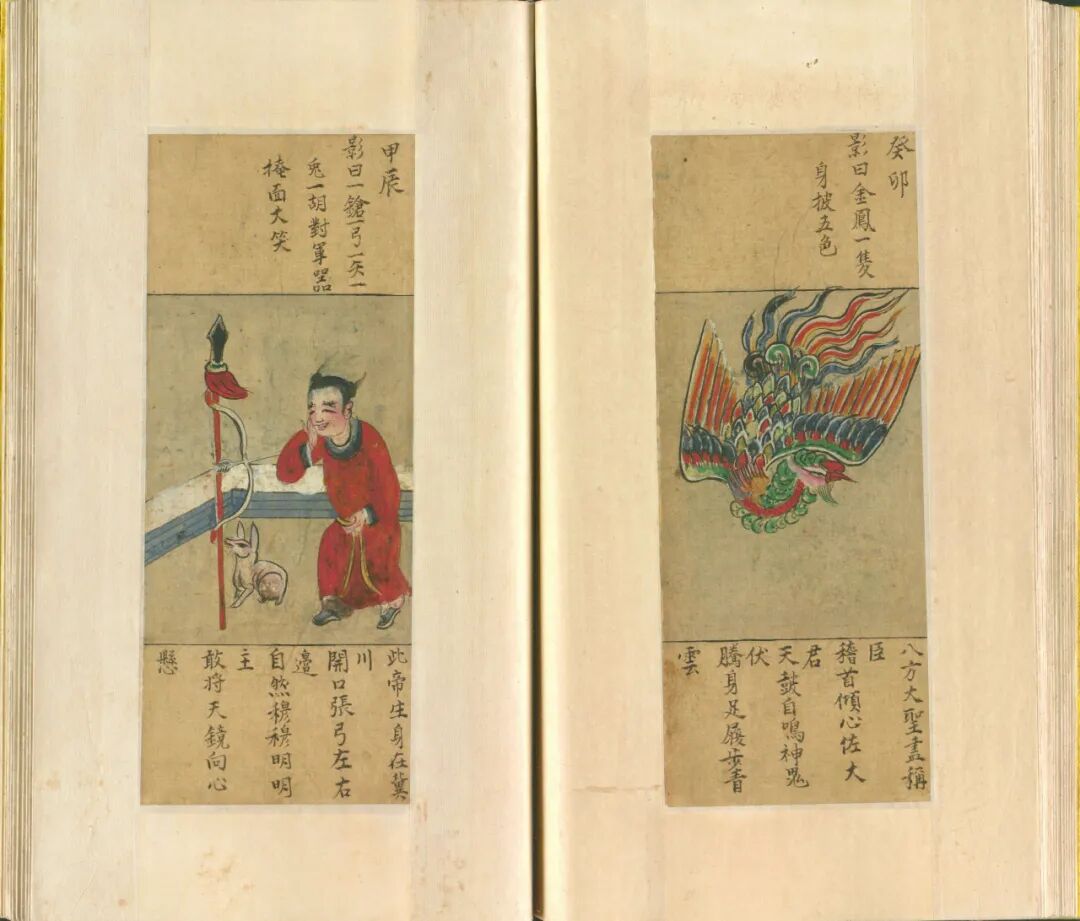 癸卯
影曰金鳳一隻
身披五色
八方大聖盡稱
臣
稽首傾心佐大
君
天鼓自鳴神鬼
伏
騰身足履步青
雲
甲辰
影曰一鎗一弓一矢一
兎一胡對軍器
掩面大笑
此帝生身在冀
川
開口張弓左右
邉
自然穆穆明明
主
敢将天鏡向心
懸